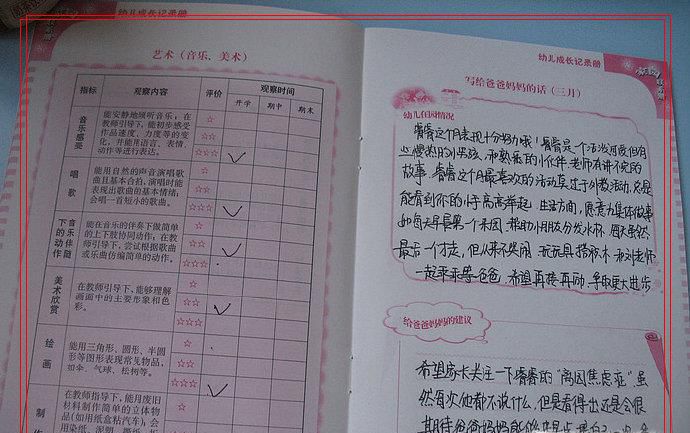 幼儿成长记录册
艺术（音乐、美术）
指标 观察内容 评价 观察时间
开学 期中 期末
音乐感受
能安静地倾听音乐；在
教师引导下，能初步感受
作品速度、力度等的变
化，并能用语言、表情、
动作等进行表达。
☆
☆☆
☆☆☆ ✓
唱歌
能用自然的声音演唱歌
曲且基本合拍，演唱时能
表现出歌曲的基本情绪；
会唱一首短小的歌曲。
☆
☆☆
☆☆☆ ✓
音乐伴随下的动作
能在音乐的伴奏下做简单
的上下肢协同动作；在教
师引导下，尝试根据歌曲
或乐曲仿编简单的动作。
☆
☆☆ ✓
☆☆☆
美术欣赏
在教师引导下，能够理解
画面中的主要形象和色
彩。
☆
☆☆ ✓
☆☆☆
绘画
能用三角形、圆形、半圆
形等图形表现常见物品，
如伞、气球、松树等。
☆
☆☆
☆☆☆ ✓
制作
在教师指导下，能用废旧
材料制作简单的立体物
品(如用纸盒粘汽车)；会
☆
幼儿成长记录册
写给爸爸妈妈的话（三月）
幼儿在园情况
睿睿这个月表现十分努力哦！睿睿是个活泼可爱但有
些慢热的小男孩，和熟悉的小伙伴、老师有讲不完的
故事。睿睿这个月最喜欢的活动莫过于小数活动，总是
能看到你的小手高高举起。生活方面，愿意为集体做事
如每天早晨第一个来园，帮助小朋友分发水杯，周五虽然
最后一个才走，但从来不哭闹，玩玩具，搭积木，和刘老师
一起乖乖等爸爸。希望再接再励，争取更大进步
给爸爸妈妈的建议
希望家长关注一下睿睿的“离园焦虑症”虽
然每次他都不说什么，但是看得出还是会很
期待爸爸妈妈能够